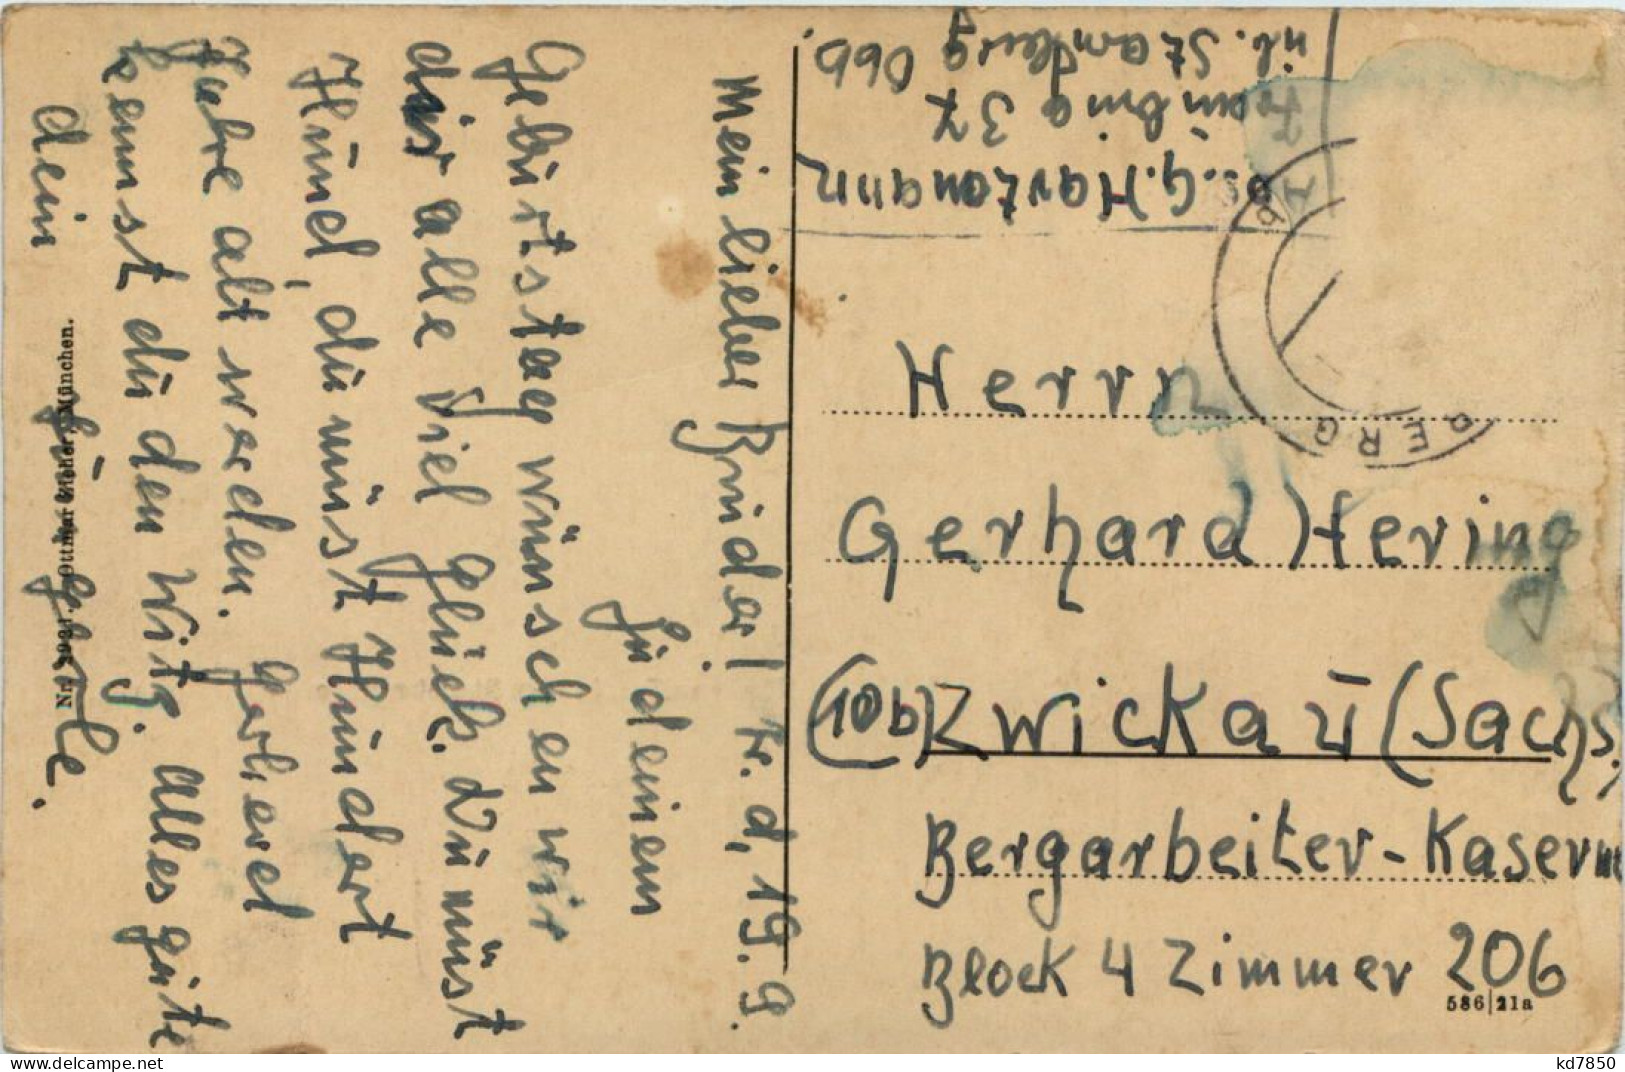 Mein lieber Bruder! Fr. d. 19. 9.
Zu deinem
Geburtstag wünschen wir
dir alle viel Glück. Du müst
Hund, du müst Hundert
Jahre alt werden. Gerhard
kennst du den Witz. Alles gute
dein
Nr. Ottmar Zieher, München.
G. Hartmann
37
üb. Starnberg Obb.
BERG
Herrn
Gerhard Hering
(10b) Zwickau (Sachs.)
Bergarbeiter-Kaserne
Block 4 Zimmer 206
586/21a
kd7850